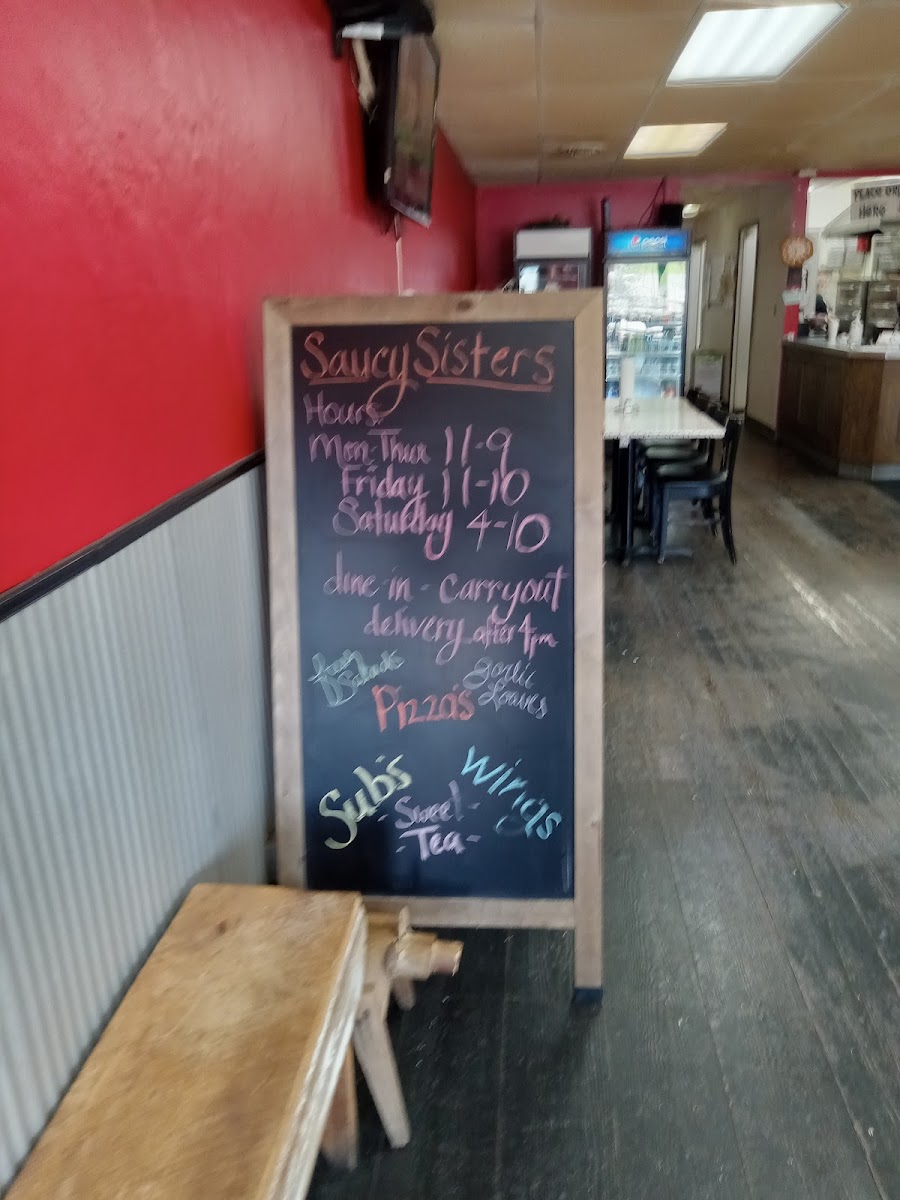 Saucy Sisters
Hours:
Mon-Thur 11-9
Friday 11-10
Saturday 4-10
dine-in - carryout
delivery after 4pm
Salads
garlic
Loaves
Pizza's
Sub's
Wings
- Sweet -
- Tea -
pepsi
PLACE
HERE